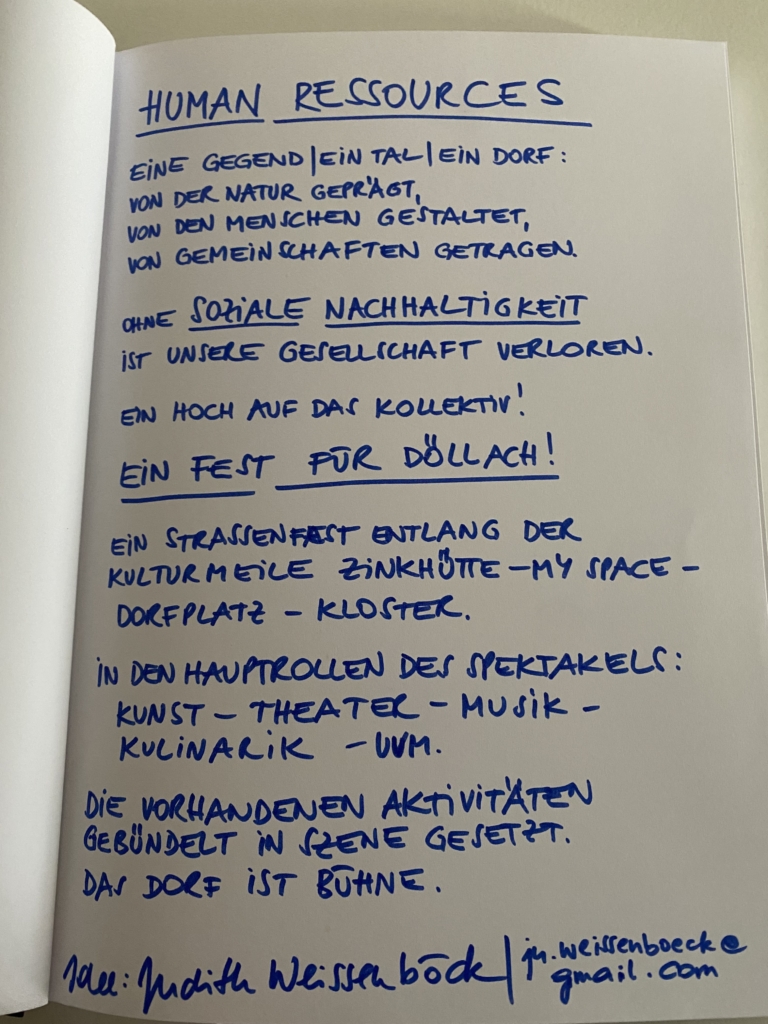 HUMAN RESSOURCES
EINE GEGEND | EIN TAL | EIN DORF:
VON DER NATUR GEPRÄGT,
VON DEN MENSCHEN GESTALTET,
VON GEMEINSCHAFTEN GETRAGEN.
OHNE SOZIALE NACHHALTIGKEIT
IST UNSERE GESELLSCHAFT VERLOREN.
EIN HOCH AUF DAS KOLLEKTIV!
EIN FEST FÜR DÖLLACH!
EIN STRASSENFEST ENTLANG DER
KULTURMEILE ZINKHÜTTE – MY SPACE –
DORFPLATZ – KLOSTER.
IN DEN HAUPTROLLEN DES SPEKTAKELS:
KUNST – THEATER – MUSIK –
KULINARIK – UVM.
DIE VORHANDENEN AKTIVITÄTEN
GEBÜNDELT IN SZENE GESETZT.
DAS DORF IST BÜHNE.
Idee: Judith Weissenböck | ju.weissenboeck@
gmail.com